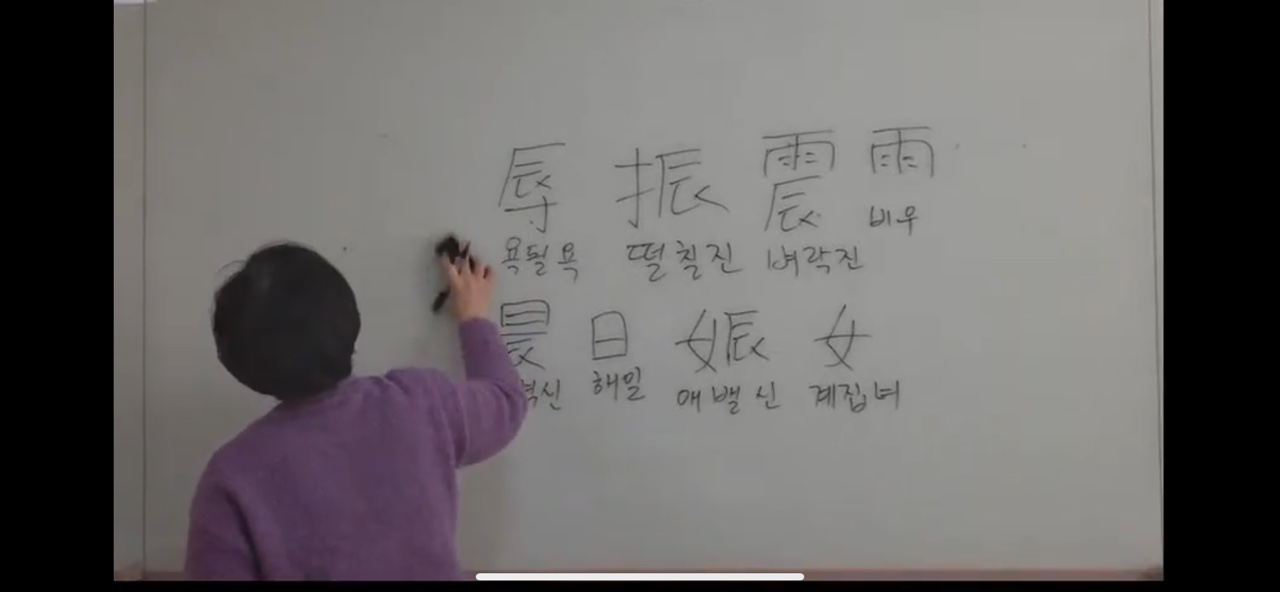 辱 振 震 雨
욕될욕 떨칠진 벼락진 비우
晨 日 娠 女
해일 애밸신 계집녀